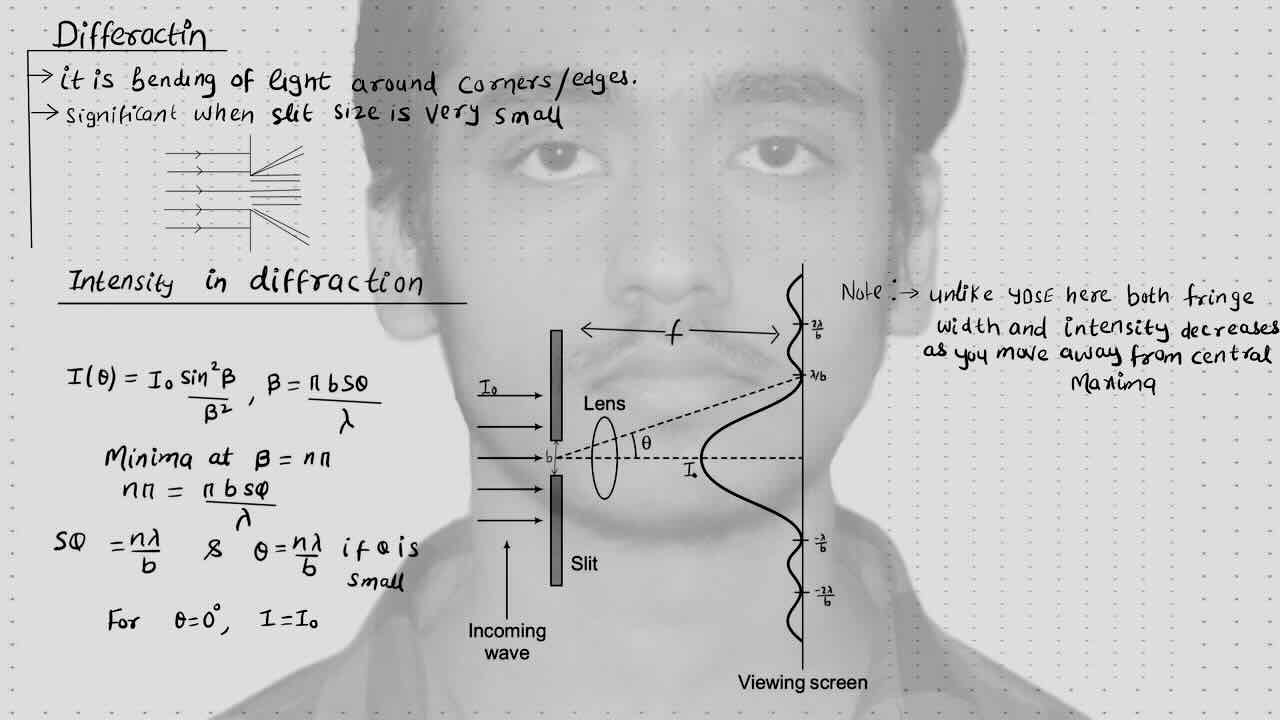 Differactin
→ it is bending of light around corners/edges.
→ significant when slit size is very small
Intensity in diffraction
I(θ) = I₀ sin²β/β², β = π b sθ/λ
Minima at β = nπ
nπ = π b sθ/λ
sθ = nλ/b & θ = nλ/b if θ is
small
For θ=0°, I=I₀
f
I₀
Lens
b
θ
I₀
Slit
Incoming
wave
2λ/b
λ/b
-λ/b
-2λ/b
Viewing screen
Note :→ unlike YDSE here both fringe
width and intensity decreases
as you move away from central
Maxima